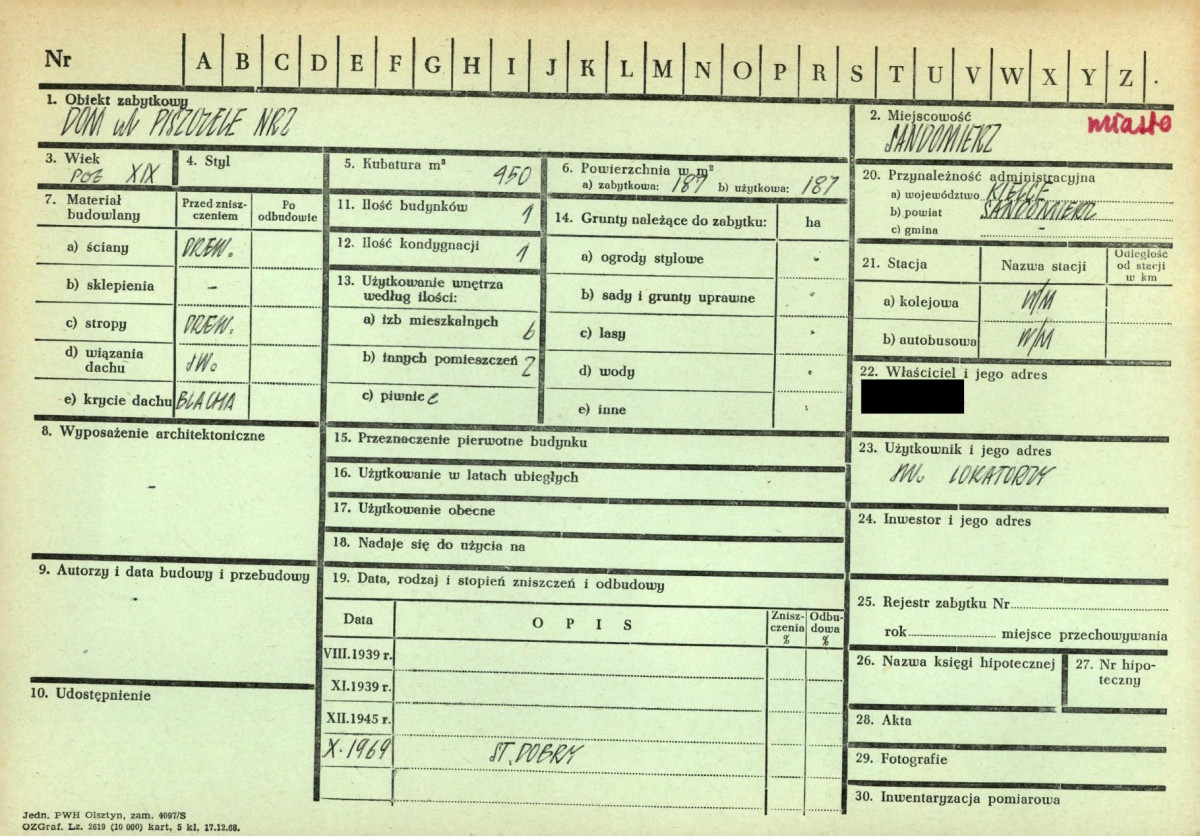 Nr A B C D E F G H I J K L M N O P R S T U V W X Y Z .
1. Obiekt zabytkowy
DOM ul. PISZCZELE NR 2
2. Miejscowość
SANDOMIERZ
miasto
3. Wiek
POŁ XIX
4. Styl
5. Kubatura m³
950
6. Powierzchnia w m²
a) zabytkowa: 187 b) użytkowa: 187
20. Przynależność administracyjna
a) województwo KIELCE
b) powiat SANDOMIERZ
c) gmina -
7. Materiał budowlany
Przed zniszczeniem
Po odbudowie
a) ściany DREW.
b) sklepienia -
c) stropy DREW.
d) wiązania dachu JW.
e) krycie dachu BLACHA
11. Ilość budynków 1
12. Ilość kondygnacji 1
13. Użytkowanie wnętrza
według ilości:
a) izb mieszkalnych 6
b) innych pomieszczeń 2
c) piwnic
14. Grunty należące do zabytku: ha
a) ogrody stylowe -
b) sady i grunty uprawne -
c) lasy -
d) wody -
e) inne -
21. Stacja
Nazwa stacji
Odległość od stacji w km
a) kolejowa W/M
b) autobusowa W/M
22. Właściciel i jego adres
8. Wyposażenie architektoniczne
-
15. Przeznaczenie pierwotne budynku
16. Użytkowanie w latach ubiegłych
17. Użytkowanie obecne
18. Nadaje się do użycia na
23. Użytkownik i jego adres
LOKATORZY
24. Inwestor i jego adres
9. Autorzy i data budowy i przebudowy
-
19. Data, rodzaj i stopień zniszczeń i odbudowy
Data
OPIS
Zniszczenia %
Odbudowa %
VIII.1939 r.
XI.1939 r.
XII.1945 r.
X.1969 ST. DOBRY
25. Rejestr zabytku Nr
rok miejsce przechowywania
26. Nazwa księgi hipotecznej
27. Nr hipoteczny
10. Udostępnienie
28. Akta
29. Fotografie
30. Inwentaryzacja pomiarowa
Jedn. PWH Olsztyn, zam. 4097/S
OZGraf. Lz. 2619 (10 000) kart, 5 kl. 17.12.68.